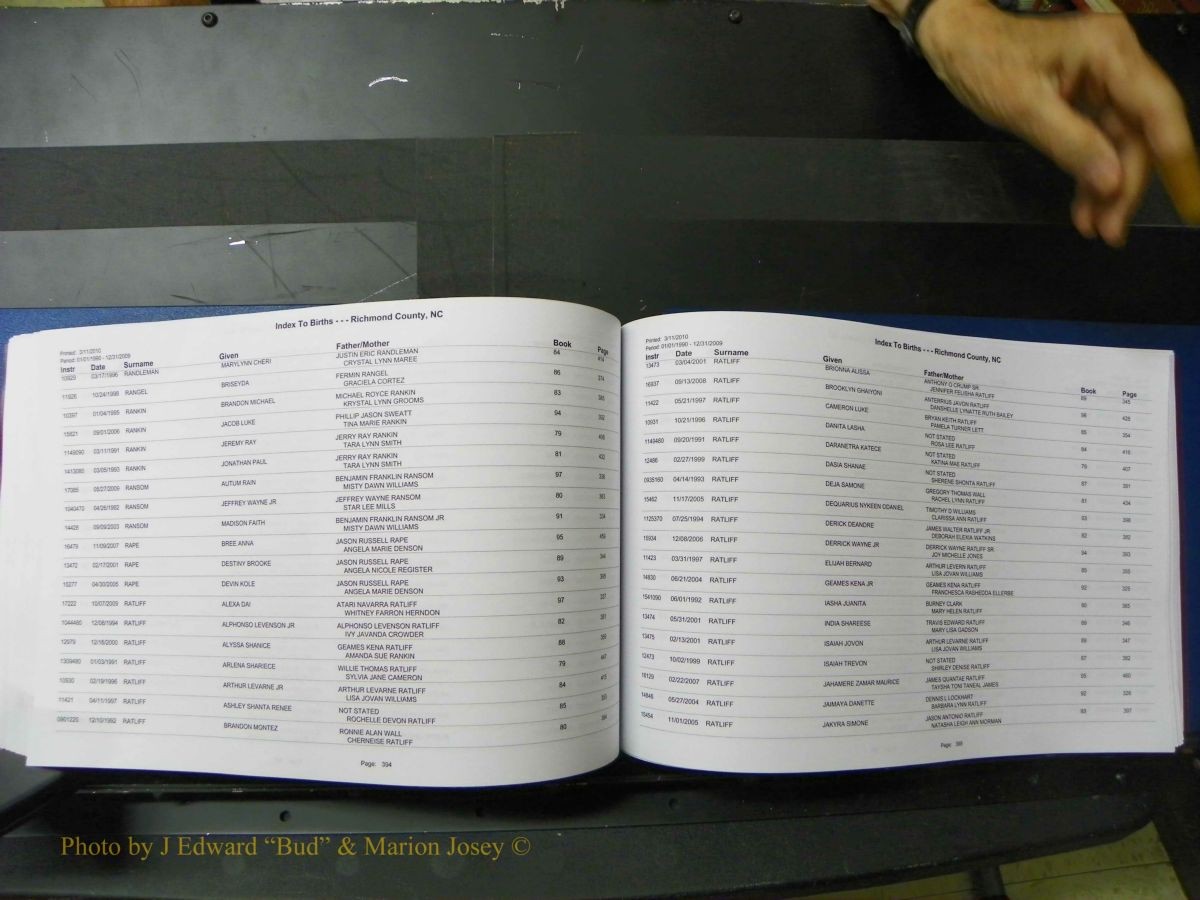 Index To Births - - - Richmond County, NC
Printed: 3/11/2010
Period: 01/01/1990 - 12/31/2009
Instr Date Surname Given Father/Mother Book Page
10929 03/17/1996 RANDLEMAN MARYLYNN CHERI JUSTIN ERIC RANDLEMAN 84 414
CRYSTAL LYNN MAREE
11926 10/24/1998 RANGEL BRISEYDA FERMIN RANGEL 86 374
GRACIELA CORTEZ
10397 01/04/1995 RANKIN BRANDON MICHAEL MICHAEL ROYCE RANKIN 83 385
KRYSTAL LYNN GROOMS
15821 09/01/2006 RANKIN JACOB LUKE PHILLIP JASON SWEATT 94 302
TINA MARIE RANKIN
1149090 03/11/1991 RANKIN JEREMY RAY JERRY RAY RANKIN 79 406
TARA LYNN SMITH
1413085 03/05/1993 RANKIN JONATHAN PAUL JERRY RAY RANKIN 81 433
TARA LYNN SMITH
17085 08/27/2009 RANSOM AUTUM RAIN BENJAMIN FRANKLIN RANSOM 97 336
MISTY DAWN WILLIAMS
1040470 04/26/1992 RANSOM JEFFREY WAYNE JR JEFFREY WAYNE RANSOM 80 383
STAR LEE MILLS
14426 09/09/2003 RANSOM MADISON FAITH BENJAMIN FRANKLIN RANSOM JR 91 334
MISTY DAWN WILLIAMS
16479 11/09/2007 RAPE BREE ANNA JASON RUSSELL RAPE 95 459
ANGELA MARIE DENSON
13472 02/17/2001 RAPE DESTINY BROOKE JASON RUSSELL RAPE 89 344
ANGELA NICOLE REGISTER
15277 04/30/2005 RAPE DEVIN KOLE JASON RUSSELL RAPE 93 355
ANGELA MARIE DENSON
17222 10/07/2009 RATLIFF ALEXA DA! ATARI NAVARRA RATLIFF 97 337
WHITNEY FARRON HERNDON
1044480 12/08/1994 RATLIFF ALPHONSO LEVENSON JR ALPHONSO LEVENSON RATLIFF 82 351
IVY JAVANDA CROWDER
12979 12/16/2000 RATLIFF ALYSSA SHANICE GEAMES KENA RATLIFF 88 359
AMANDA SUE RANKIN
1309480 01/03/1991 RATLIFF ARLENA SHARIECE WILLIE THOMAS RATLIFF 79 447
SYLVIA JANE CAMERON
10930 02/19/1996 RATLIFF ARTHUR LEVARNE JR ARTHUR LEVARNE RATLIFF 84 415
LISA JOVAN WILLIAMS
11421 04/11/1997 RATLIFF ASHLEY SHANTA RENEE NOT STATED 85 353
ROCHELLE DEVON RATLIFF
0901220 12/10/1992 RATLIFF BRANDON MONTEZ RONNIE ALAN WALL 80 384
CHERNEISE RATLIFF
Page: 394
Index To Births - - - Richmond County, NC
Printed: 3/11/2010
Period: 01/01/1990 - 12/31/2009
Instr Date Surname Given Father/Mother Book Page
13473 03/04/2001 RATLIFF BRIONNA ALISSA ANTHONY O CRUMP SR 89 345
JENNIFER FELISHA RATLIFF
16937 09/13/2008 RATLIFF BROOKLYN GHAIYONI ANTERRIUS JAVON RATLIFF 96 428
DANSHELLE LYNATTE RUTH BAILEY
11422 05/21/1997 RATLIFF CAMERON LUKE BRYAN KEITH RATLIFF 85 354
PAMELA TURNER LETT
10931 10/21/1996 RATLIFF DANITA LASHA NOT STATED 84 416
ROSA LEE RATLIFF
1149480 09/20/1991 RATLIFF DARANETRA KATECE NOT STATED 79 407
KATINA MAE RATLIFF
12486 02/27/1999 RATLIFF DASIA SHANAE NOT STATED 87 381
SHERENE SHONTA RATLIFF
0935160 04/14/1993 RATLIFF DEJA SAMONE GREGORY THOMAS WALL 81 434
RACHEL LYNN RATLIFF
15462 11/17/2005 RATLIFF DEQUARIUS NYKEEN ODANIEL TIMOTHY D WILLIAMS 93 398
CLARISSA ANN RATLIFF
1125370 07/25/1994 RATLIFF DERICK DEANDRE JAMES WALTER RATLIFF JR 82 382
DEBORAH ELEXIA WATKINS
15934 12/08/2006 RATLIFF DERRICK WAYNE JR DERRICK WAYNE RATLIFF SR 94 393
JOY MICHELLE JONES
11423 03/31/1997 RATLIFF ELIJAH BERNARD ARTHUR LEVERN RATLIFF 85 355
LISA JOVAN WILLIAMS
14830 06/21/2004 RATLIFF GEAMES KENA JR GEAMES KENA RATLIFF 92 325
FRANCHESCA RASHEDDA ELLERBE
1541090 06/01/1992 RATLIFF IASHA JUANITA BURNEY CLARK 80 385
MARY HELEN RATLIFF
13474 05/31/2001 RATLIFF INDIA SHAREESE TRAVIS EDWARD RATLIFF 89 346
MARY LISA GADSON
13475 02/13/2001 RATLIFF ISAIAH JOVON ARTHUR LEVARNE RATLIFF 89 347
LISA JOVAN WILLIAMS
12473 10/02/1999 RATLIFF ISAIAH TREVON NOT STATED 87 382
SHIRLEY DENISE RATLIFF
16129 02/22/2007 RATLIFF JAHAMERE ZAMAR MAURICE JAMES QUANTAE RATLIFF 95 460
TAYSHA TONI TANEAL JAMES
14846 05/27/2004 RATLIFF JAIMAYA DANETTE DENNIS L LOCKHART 92 326
BARBARA LYNN RATLIFF
15454 11/01/2005 RATLIFF JAKYRA SIMONE JASON ANTONIO RATLIFF 93 397
NATASHA LEIGH ANN MORMAN
Page: 395
Photo by J Edward “Bud” & Marion Josey ©